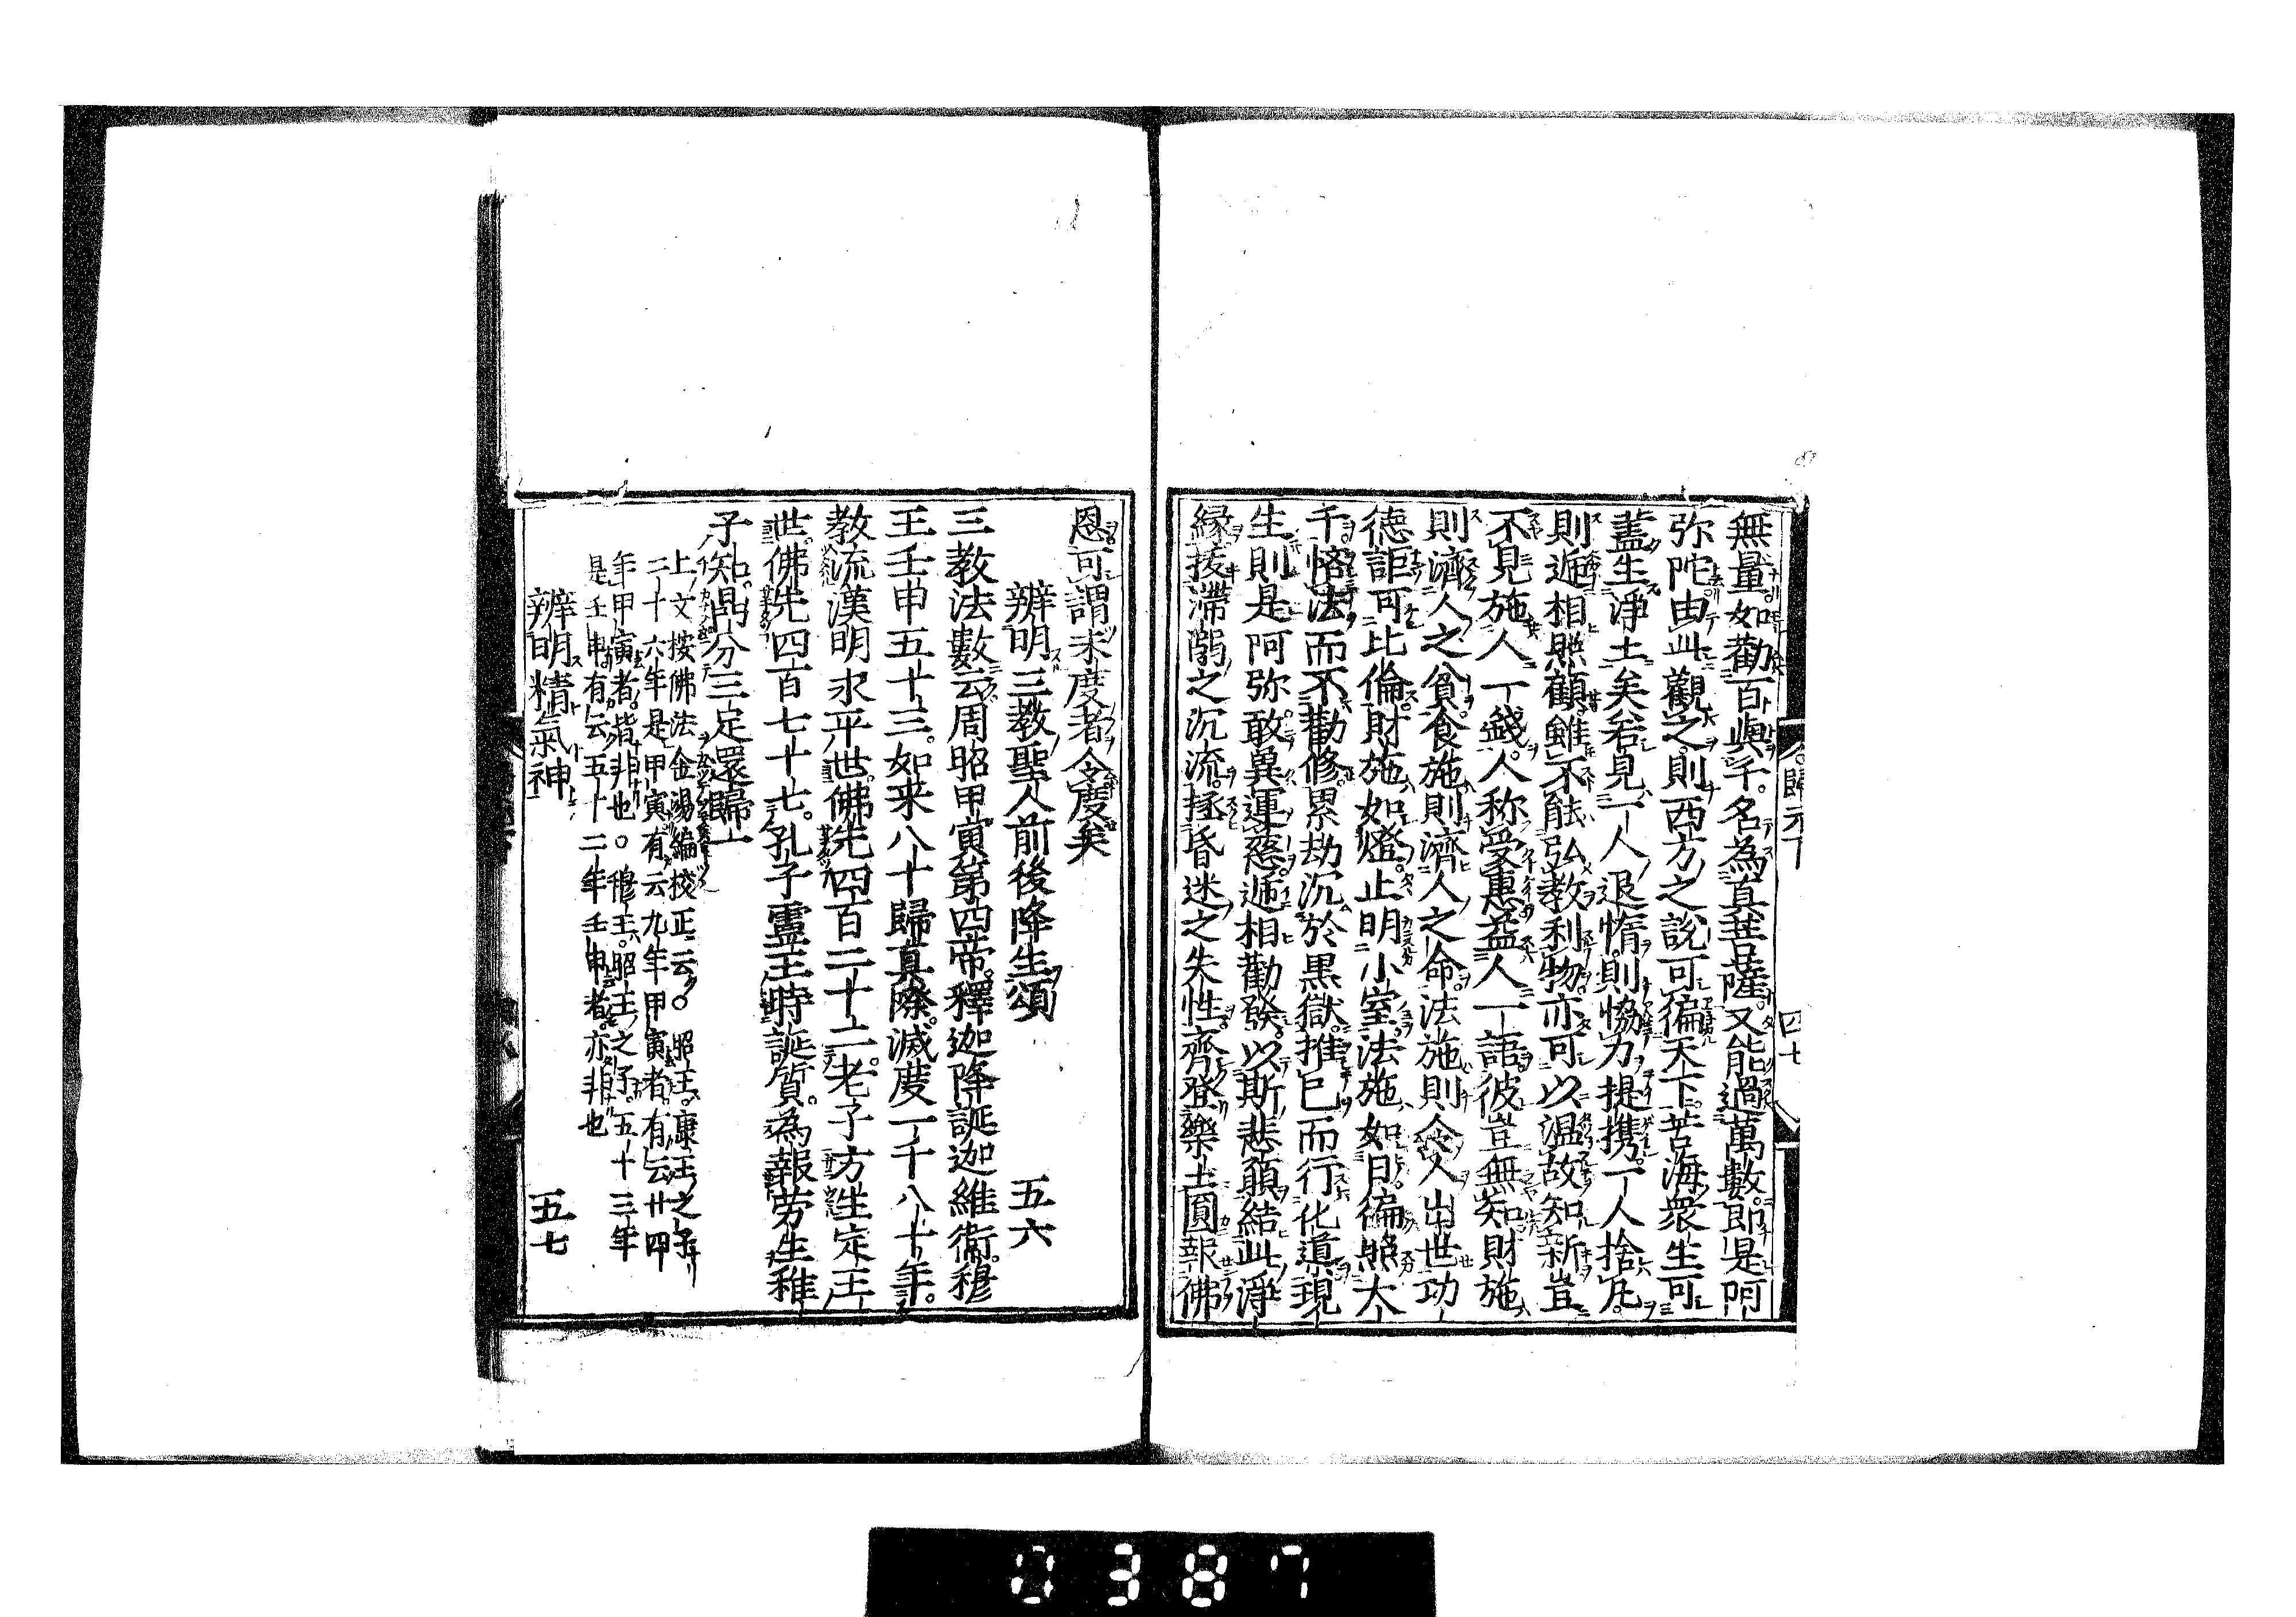 無量如勸百與千名為真菩薩又能過萬數即是阿
弥陀由此觀之則西方之說可徧天下苦海衆生可
盖生淨土矣若見一人退惰則恊力提携一人捨凡
則遞相照顧雖不能弘教利物亦可以溫故知新豈
不見施人一錢人称受惠益人一語彼豈無知財施
則濟人之貧食施則濟人之命法施則令人出世功
德詎可比倫財施如燈止明小室法施如日徧照大
千悋法而不勸修累劫沉於黒獄推已而行化道現
生則是阿弥敢兾運慈遞相勸發以斯悲願結此淨
縁接滯㵎之沉流拯昏迷之失性齊登樂土圓報佛
歸元下
四十七
恩可謂未度者令度矣
辨明三教聖人前後降生頌
五六
三教法數云周昭甲寅第四帝釋迦降誕迦維衞穆
王壬申五十三如来八十歸真際滅度一千八十年
教流漢明永平世佛先四百二十二老子方生定王
世佛先四百七十七孔子靈王時誕質為報劳生稚
子知昌分三足還歸一
上文按佛法金湯編校正云○昭王康王之子
二十六年是甲寅有云九年甲寅者有云廿四
年甲寅者皆非也○穆王昭王之子五十三年
是壬申有云五十二年壬申者亦非也
辨明精氣神
五七
0387